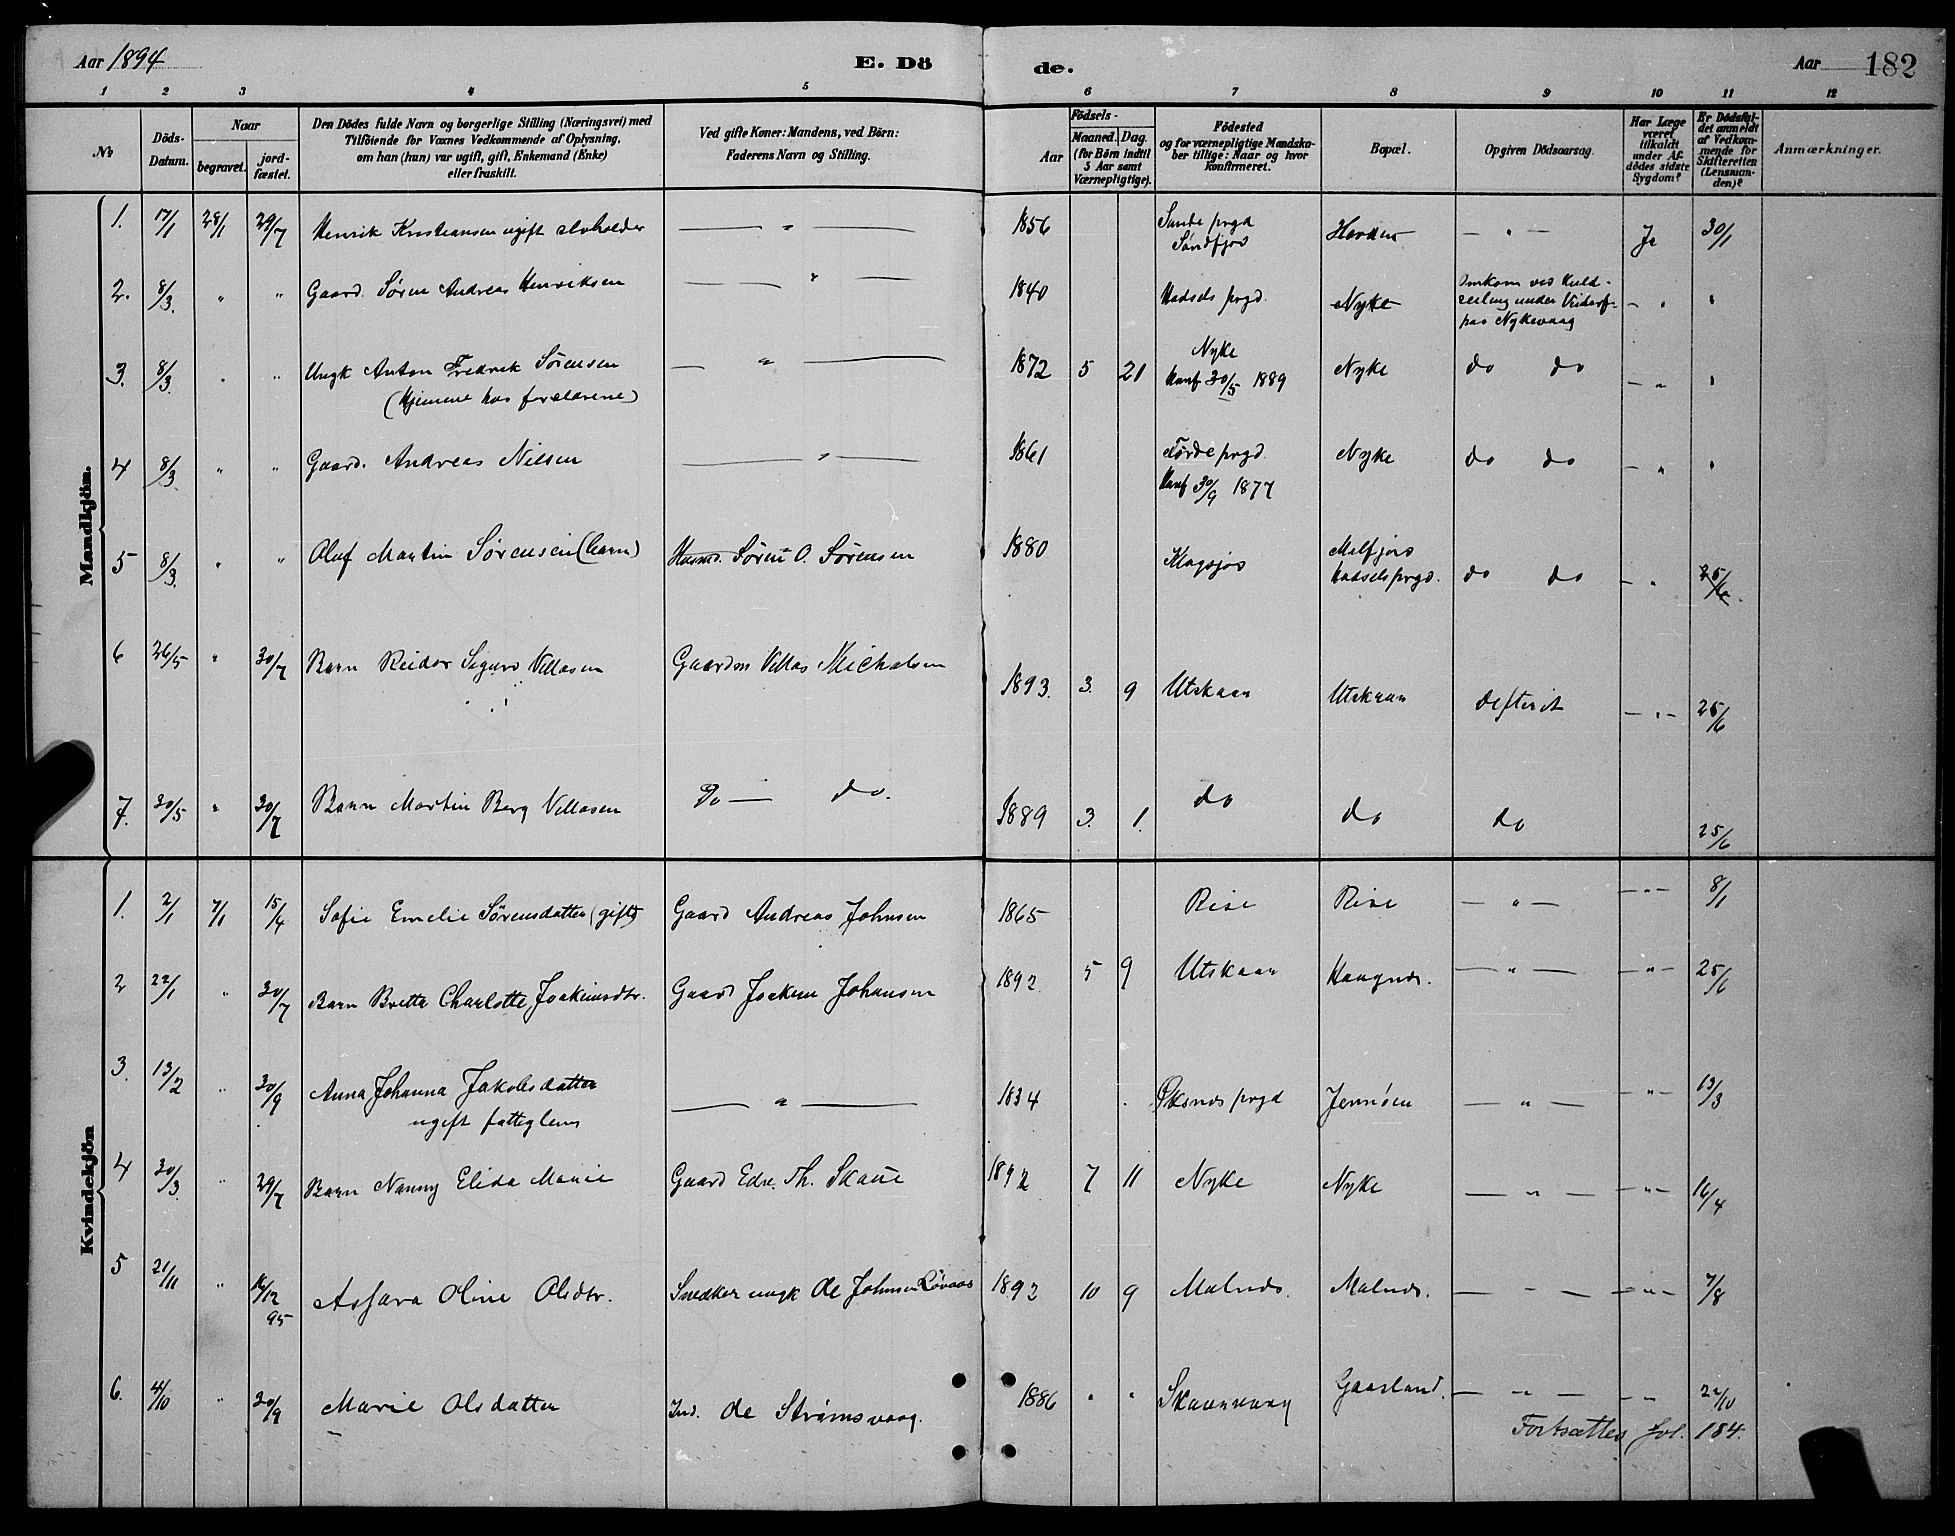 Aar 1894
E. Dö
de.
Aar
182
1 2 3 4 5 6 7 8 9 10 11 12
№
Döds-
Datum.
Naar
begravet.
jord-
fæstet.
Den Dödes fulde Navn og borgerlige Stilling (Næringsvei) med
Tilföiende for Voxnes Vedkommende af Oplysning,
om han (hun) var ugift, gift, Enkemand (Enke)
eller fraskilt.
Ved gifte Koner: Mandens, ved Börn:
Faderens Navn og Stilling.
Födsels-
Aar
Maaned. Dag.
(for Börn indtil
5 Aar samt
Værnepligtige).
Födested
og for værnepligtige Mandska-
ber tillige: Naar og hvor
konfirmeret.
Bopæl.
Opgiven Dödsaarsag.
Har Læge
været
tilkaldt
under Af-
dödes sidste
Sygdom?
Er Dödsfal-
det anmeldt
af Vedkom-
mende for
Skifteretten
(Lensman-
den)?
Anmærkninger.
Mandkjön.
1. 17/1 28/1 29/7 Henrik Kristiansen ugift — " — 1856 Sande prgd Söndfjor — " — Ja 30/1
2. 8/3 " " Gaard. Sören Andreas Henriksen — " — 1840 Hadsels prgd. Nyke Omkom ved Kuld-
seiling under
paa Nykevaag - " "
3. 8/3 " " Ungk Anton Fredrik Sörensen — " — 1872 5 21 Nyke Konf 30/5 1889 Nyke do do - " "
(Hjemme hos forældrene)
4 8/3 " " Gaard. Andreas Nilsen — " — 1861 Förde prgd. Konf 30/9 1877 Nyke do do - " "
5 8/3 " " Oluf Martin Sörensen (barn) Husmd. Sören O. Sörensen 1880 Klogsjor Melfjor Hadsels prgd. do do - " 25/6
6 26/5 " 30/7 Barn Reidar Sigurd Villasen Gaardm Villas Michalsen 1893. 3. 9 Utskaar Utskaar defterit — " — 25/6
7. 30/5 " 30/7 Barn Martin Berg Villasen Do — do. 1889 3. 1. do do do 25/6
Kvindekjön
1. 2/1 7/1 15/4 Sofie Emelie Sörensdatter (gift) Gaard Andreas Johnsen 1865 Rise Rise — " — — " — 8/1
2 22/1 " 30/7 Barn Britta Charlotte Joakimsdtr. Gaard Joakim Johansen 1892 5 9 Utskaar Haugnes. — " — — " — 25/6
3. 13/2 " 30/9 Anna Johanna Jakobsdatter — " — 1834 Öksnes prgd Jennöen — " — — " — 13/3
ugift fatteglem
4 30/3 " 29/7 Barn Nanny Elida Marie Gaard Edv. Th. Skaue 1892 7 11 Nyke Nyke — " — — " — 16/4
5 21/11 " 16/12 95 Asfara Oline Olsdtr. Snedker ungk Ole Johnsen Lövaas 1892 10 9 Malnes. Malnes. — " — — " — 7/8
6. 4/10 " 30/9 Marie Olsdatter Ind. Ole Strömsvaag. 1886 " " Skaanvaag Gaasland. — " — — " — 22/10
Fortsættes fol. 184.